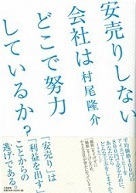 安売りしない
会社は
どこで努力
しているか？
村尾隆介
「安売り」は
「利益を出す」
ことからの
逃げである。